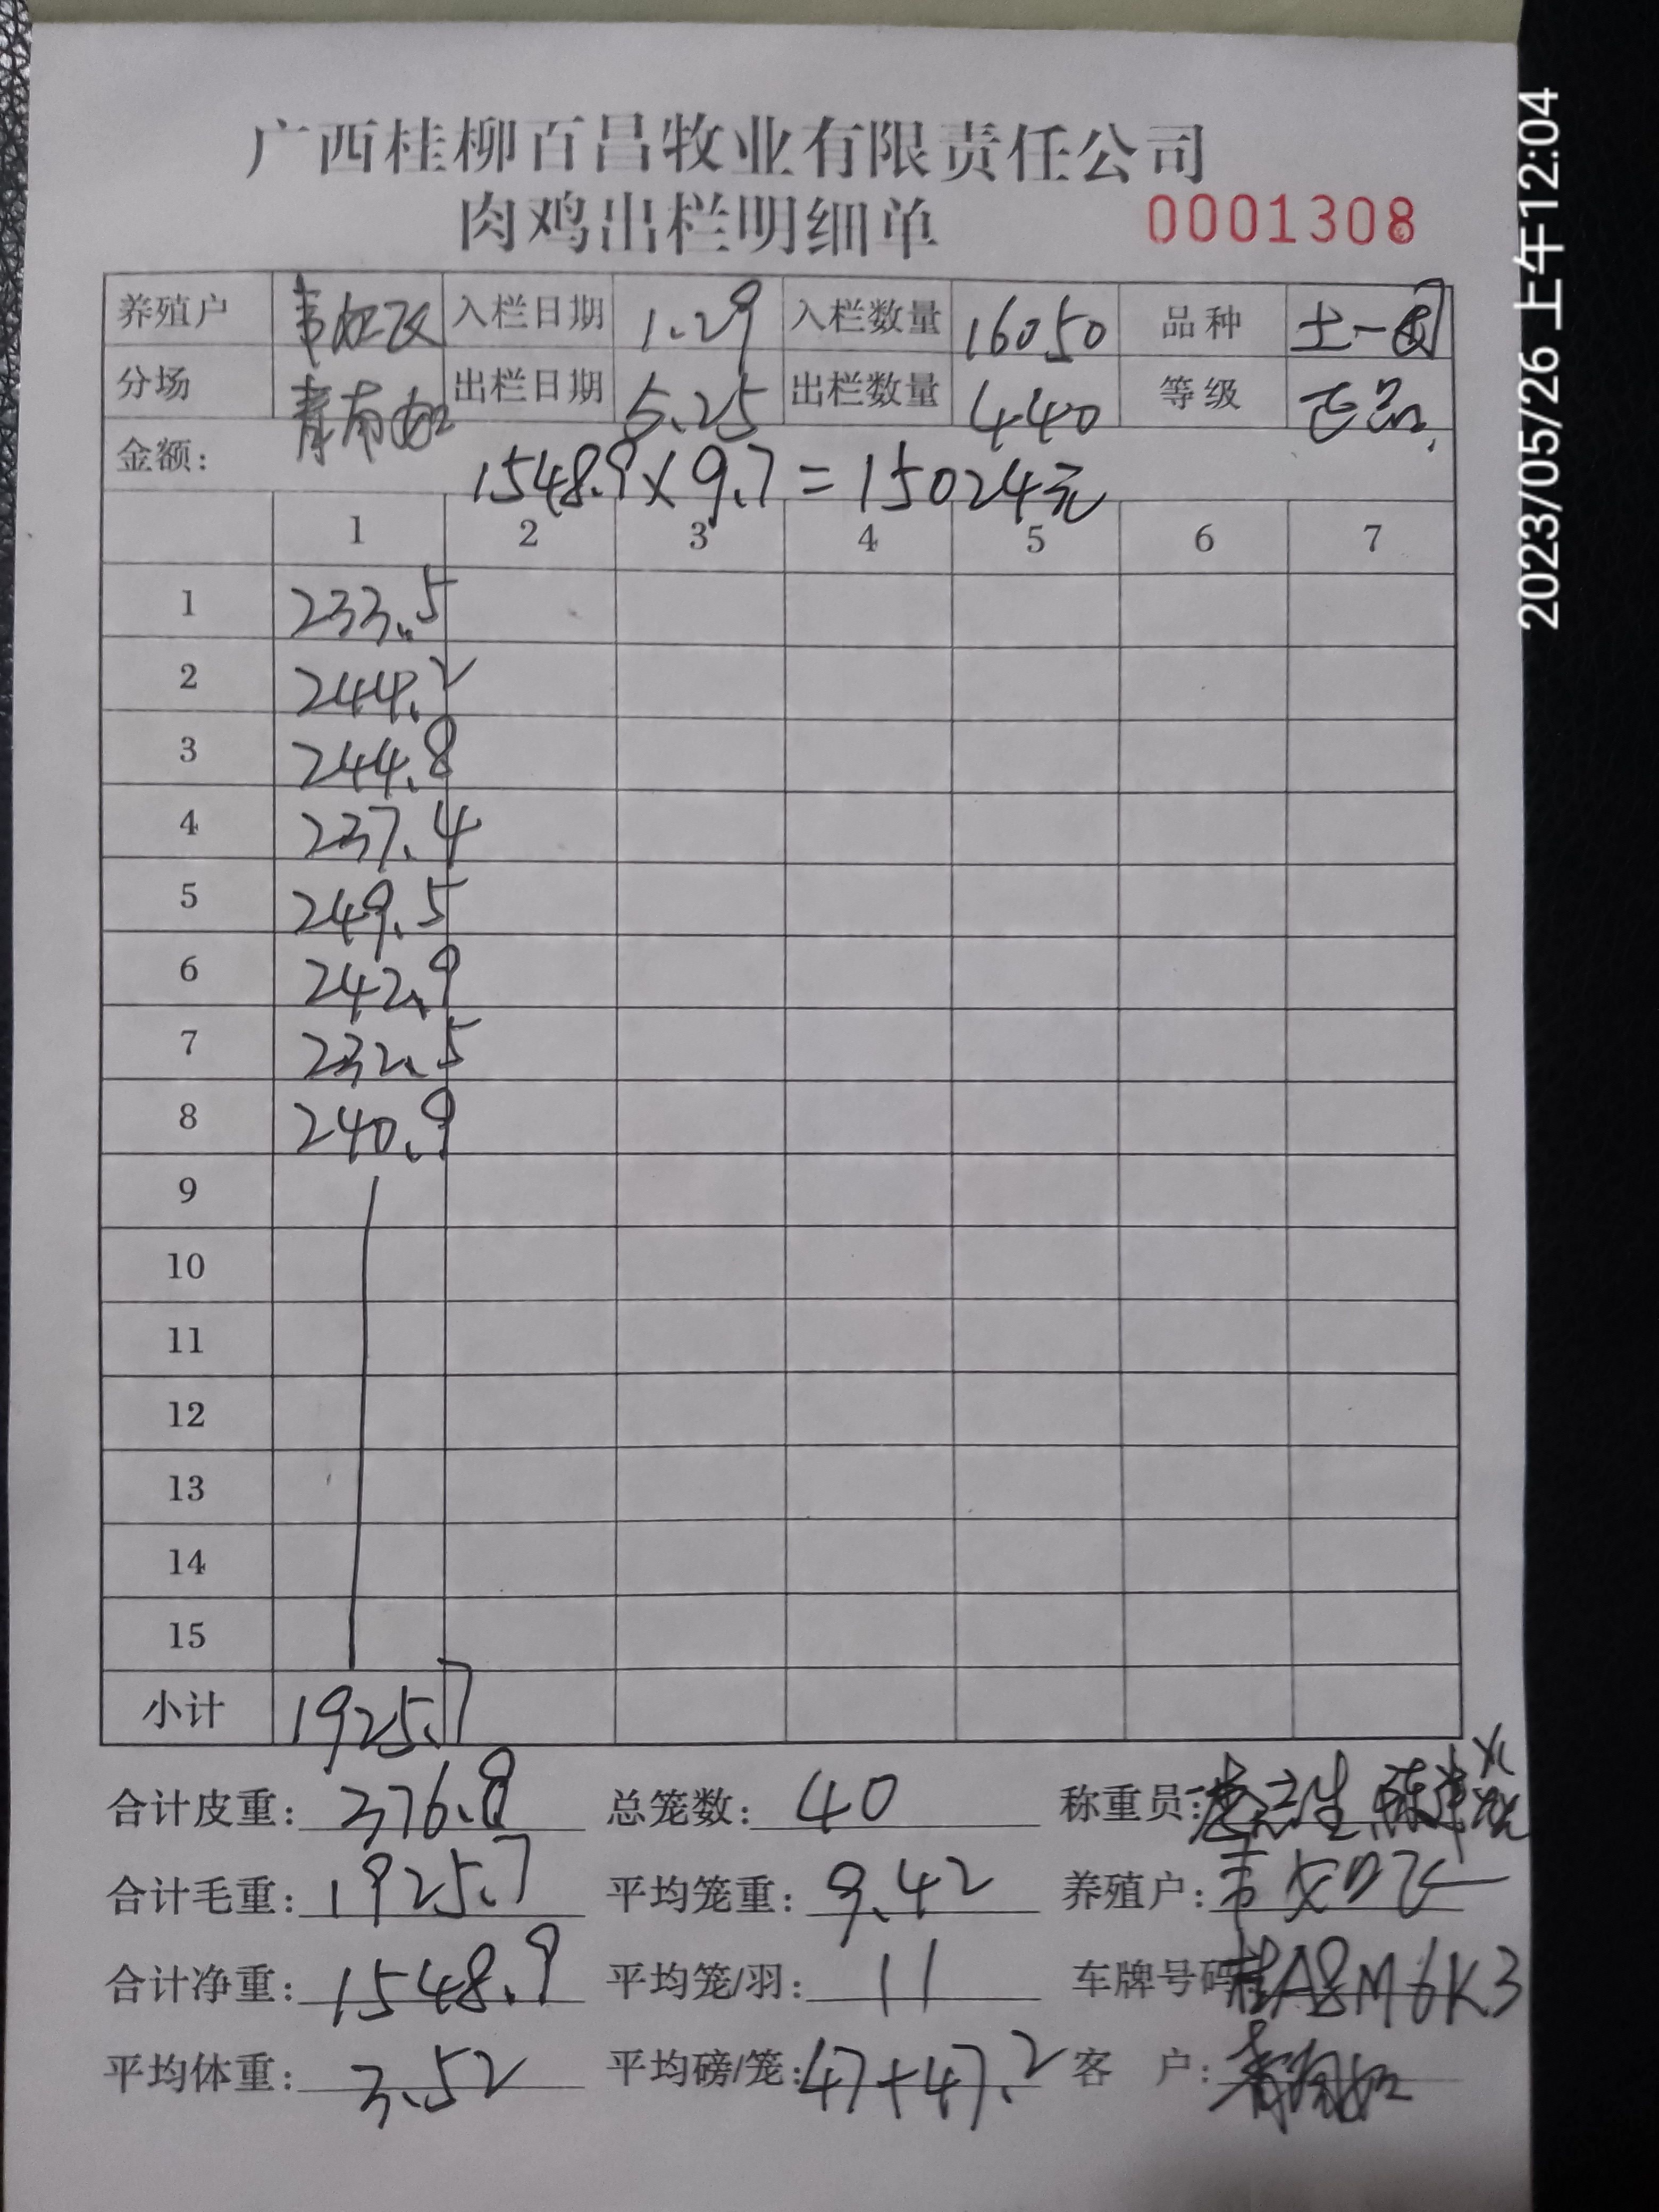 广西桂柳百昌牧业有限责任公司
肉鸡出栏明细单 0001308
养殖户 韦如飞 入栏日期 1.29 入栏数量 16050 品种 土一
分场 出栏日期 5.25 出栏数量 440 等级 正品
金额: 1548.9×9.7=15024元
1 2 3 4 5 6 7
1 233.5
2 244.2
3 244.8
4 237.4
5 249.5
6 242.9
7 232.5
8 240.9
9
10
11
12
13
14
15
小计 1925.7
合计皮重: 376.8 总笼数: 40 称重员:
合计毛重: 1925.7 平均笼重: 9.42 养殖户: 韦如飞
合计净重: 1548.9 平均笼/羽: 11 车牌号码 桂A8M6K3
平均体重: 3.52 平均磅/笼: 47+47.2 客 户:
2023/05/26 上午12:04